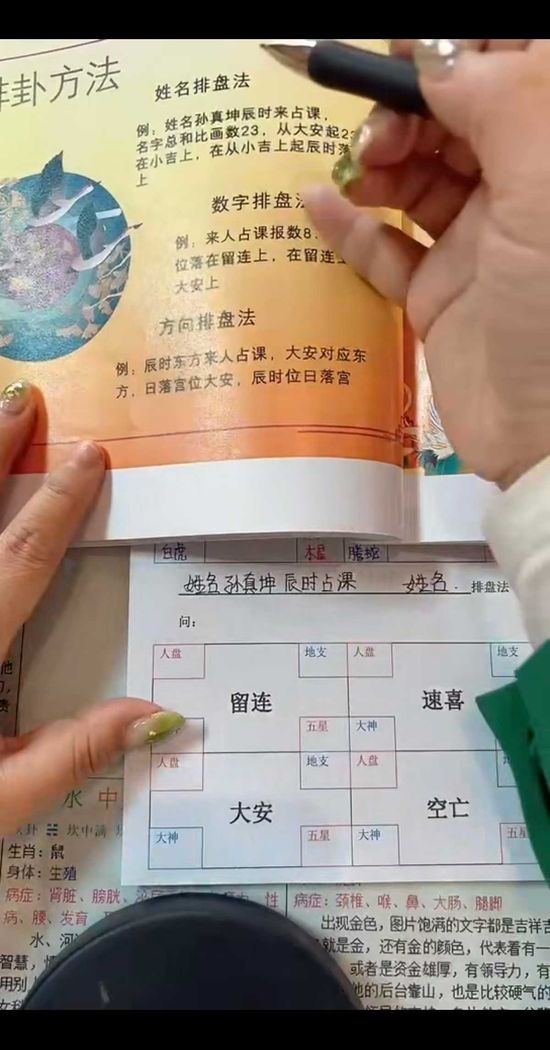 卦方法
姓名排盘法
例：姓名孙真坤辰时来占课，
名字总和比画数23，从大安起23
在小吉上，在从小吉上起辰时落
上
数字排盘法
例：来人占课报数8
位落在留连上，在留连上
大安上
方向排盘法
例：辰时东方来人占课，大安对应东
方，日落宫位大安，辰时位日落宫
白虎 木星 腾蛇
姓名孙真坤 辰时占课 姓名 排盘法
问：
人盘 地支 人盘 地支
留连 速喜
五星 大神
人盘 地支 人盘
大安 空亡
大神 五星 大神 五星
他
责
水 中
坎中满
生肖：鼠
身体：生殖
病症：肾脏、膀胱、 性 病症：颈椎、喉、鼻、大肠、腿脚
病、腰、发育 出现金色，图片饱满的文字都是吉祥吉
水、河 就是金，还有金的颜色，代表看有一
智慧， 或者是资金雄厚，有领导力，有
用别 他的后台靠山，也是比较硬气的